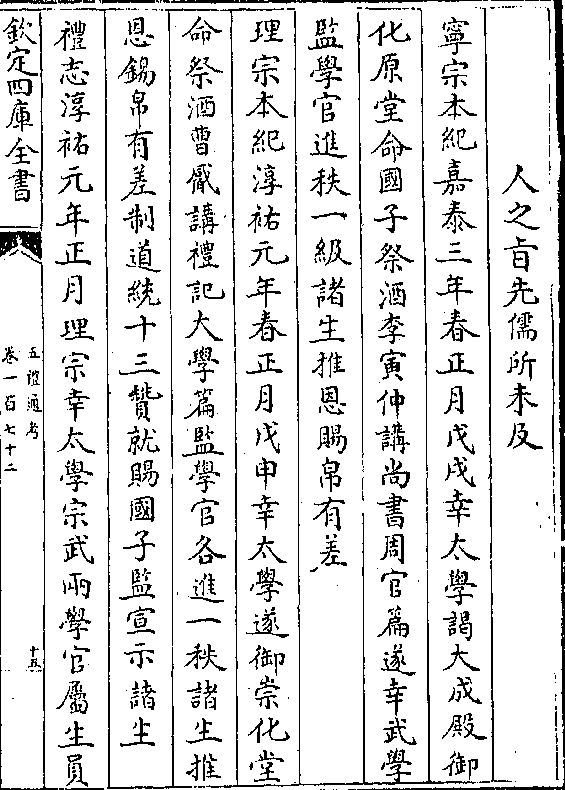 人之旨先儒所未及
寧宗本紀嘉泰三年春正月戊戌幸太學謁大成殿御
化原堂命國子祭酒李寅仲講尚書周官篇遂幸武學
監學官進秩一級諸生推恩賜帛有差
理宗本紀淳祐元年春正月戊申幸太學遂御崇化堂
命祭酒曹觱講禮記大學篇監學官各進一秩諸生推
恩錫帛有差制道統十三贊就賜國子監宣示諸生
禮志淳祐元年正月理宗幸太學宗武兩學官屬生員
欽定四庫全書
五禮通考
卷一百七十二
十五